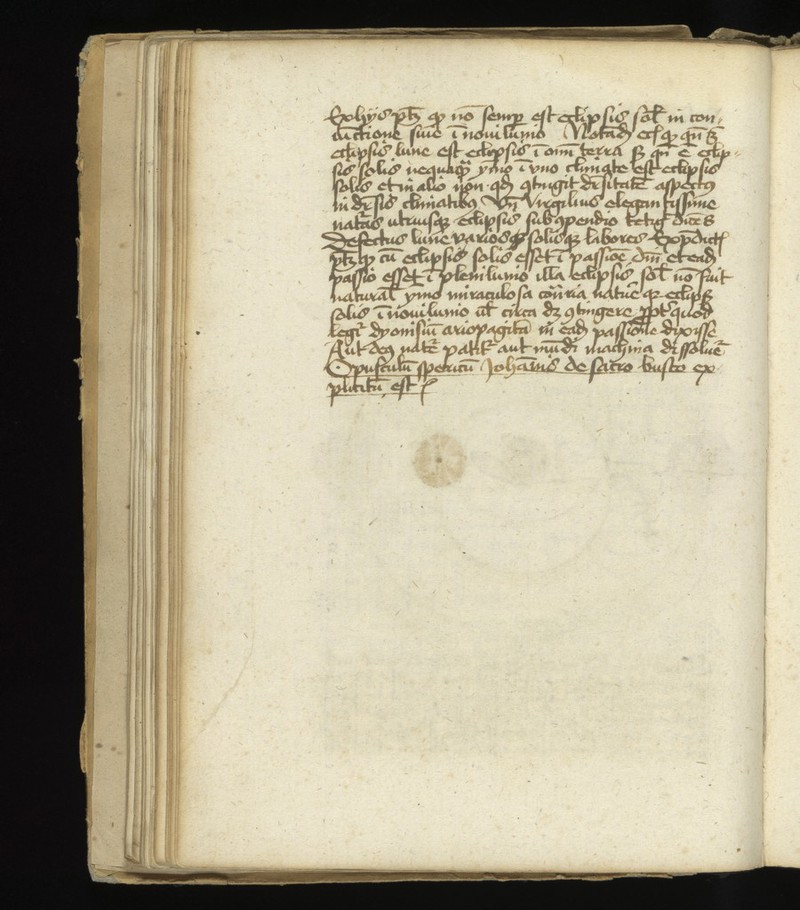 Ex hijs ptȝ qͥ nō semp est eclipsis sol' in con-
iūctione siue ī nouilunio Notād ecͥ qͥ qn̄
eclipsis lune est eclipsis ī omī terra sȝ qn̄ ē eclip-
sis solis nequaqȝ ymo ī vno climate est eclipsis
solis et in alio non qd 9tingit dīsitatē aspect9
in dīsis climatibȝ Vn̄ Virgilius elegantissime
naturas utriusqȝ eclipsis sub 9pendio tetigͭ dicēs
Defectus lune varios solisqȝ labores Ex p̄dictͥ
ptȝ qͥ cū eclipsis solis esset ī passiōe dnī et ead
passio esset ī plenilunio illa eclipsis sol' nō fuit
natural' ymo miraculosa cōtraria nature qȝ eclipsͥ
solis ī nouilunio ul' circa dȝ 9tingere ppt quod
legitͬ dyonisiū ariopagitā in ead passione dixisse
Aut deus natē patitͬ aut mūdi machina dissoluetͬ
Opusculū spericū Johānis de sacro busto ex-
plicitū est